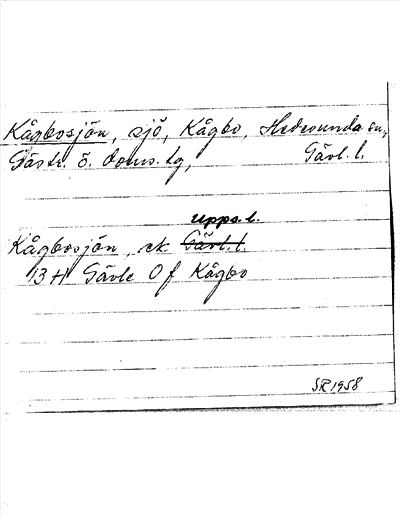 Kågbosjön, sjö, Kågbo, Hedesunda sn,
Gästr. ö. doms. tg, Gävl. l.
Upps. l.
Kågbosjön, ek. Gävl. l.
13 H Gävle 0 f Kågbo
SR 1958